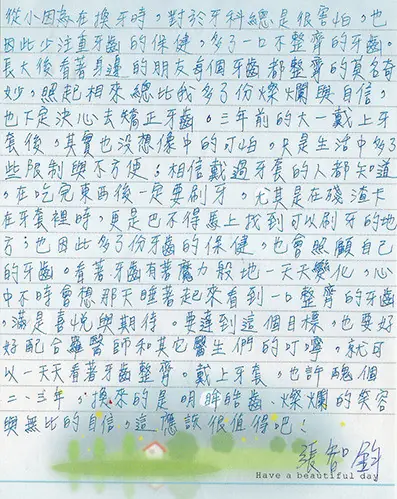 從小因為在換牙時，對於牙科總是很害怕，也
因此少注重牙齒的保健，多了一口不整齊的牙齒。
長大後看著身邊的朋友每個牙齒都整齊的莫名奇
妙，照起相來總比我多了份燦爛與自信，
也下定決心去矯正牙齒。三年前的大一戴上牙
套後，其實也沒想像中的可怕，只是生活中多了
些限制與不方便。相信戴過牙套的人都知道
，在吃完東西後一定要刷牙，尤其是在殘渣卡
在牙套裡時，更是巴不得馬上找到可以刷牙的地
方；也因此多了份牙齒的保健，也會照顧自己
的牙齒。看著牙齒有著魔力般地一天天變化，心
中不時會想那天睡著起來看到一口整齊的牙齒
，滿是喜悅與期待。要達到這個目標，也要好
好配合羅醫師和其它醫生們的叮嚀，就可
以一天天看著牙齒整齊。戴上牙套，也許醜個
二、三年，換來的是明眸皓齒、燦爛的笑容
與無比的自信，這應該很值得吧！
張智鈞
Have a beautiful day